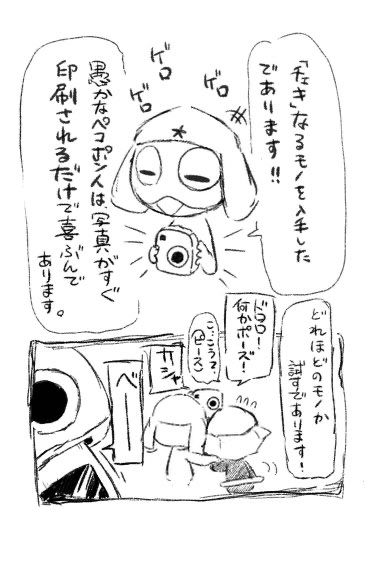 「チェキ」なるモノを入手した
であります!!
ゲロ
ゲロ
ゲロ
愚かなペコポン人は、写真がすぐ
印刷されるだけで喜ぶんで
あります。
どれほどのモノか
試すであります!
ドロロ!
何かポーズ!
こ、こう?
(ピース)
カシャ
ベーー